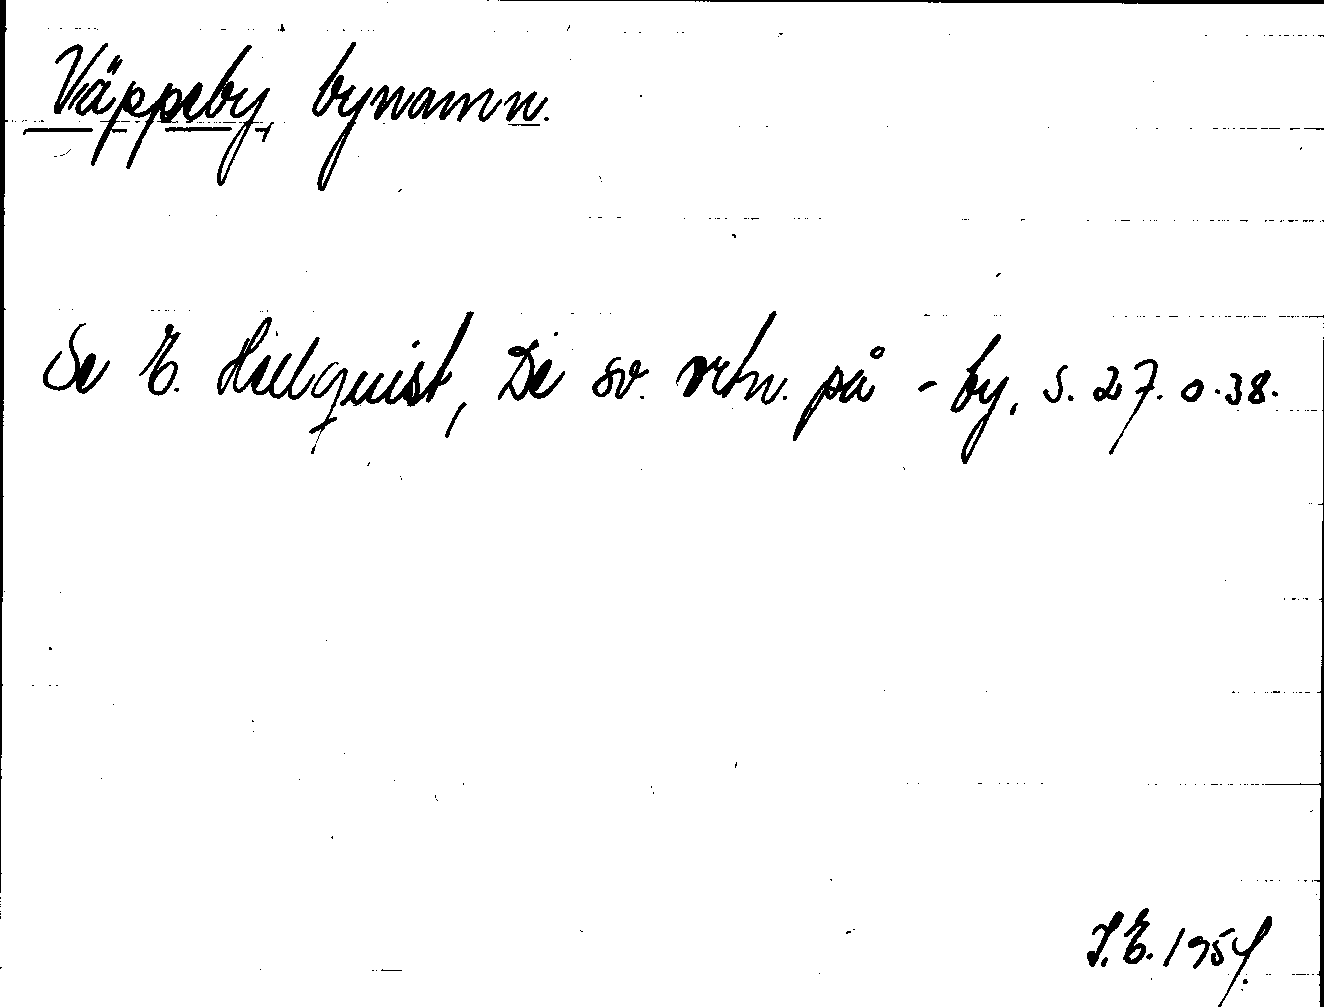 Väppeby, bynamn.
Se E. Hellquist, De sv. ortn. på -by, s. 27. o. 38.
I.E. 1954.